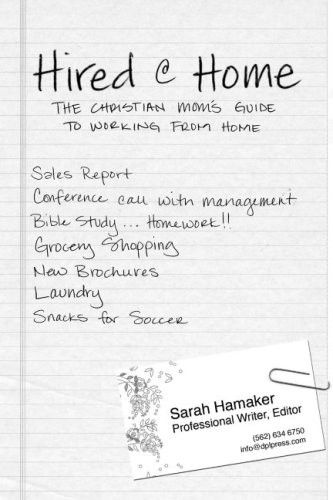 Hired @ Home
THE CHRISTIAN MOM'S GUIDE
TO WORKING FROM HOME
Sales Report
Conference call with management
Bible Study... Homework!!
Grocery Shopping
New Brochures
Laundry
Snacks for Soccer
Sarah Hamaker
Professional Writer, Editor
(562) 634 6750
info@dplpress.com